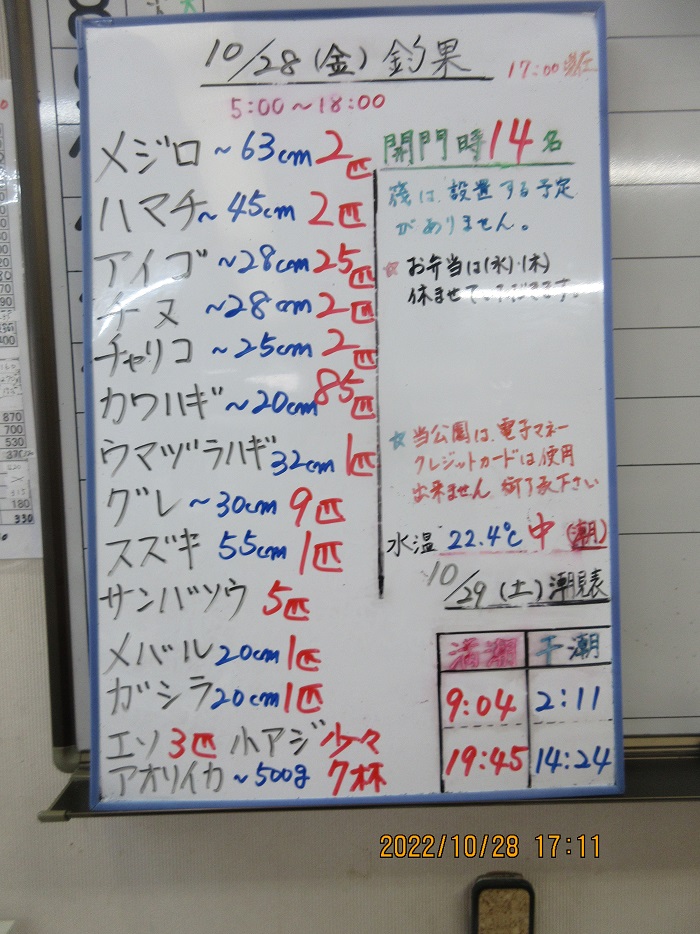 10/28(金)釣果
17:00現在
5:00~18:00
メジロ ~63cm 2匹
ハマチ ~45cm 2匹
アイゴ ~28cm 25匹
チヌ ~28cm 2匹
チャリコ ~25cm 2匹
カワハギ ~20cm 85匹
ウマヅラハギ 32cm 1匹
グレ ~30cm 9匹
スズキ 55cm 1匹
サンバソウ 5匹
メバル 20cm 1匹
ガシラ 20cm 1匹
エソ 3匹 小アジ 少々
アオリイカ ~500g 7杯
開門時14名
筏は、設置する予定
がありません。
☆お弁当は(水)・(木)
休ませていただきます。
☆当公園は、電子マネー
クレジットカードは使用
出来ません 御了承下さい
水温 22.4℃ 中(潮)
10/29(土)潮見表
満潮 干潮
9:04 2:11
19:45 14:24
2022/10/28 17:11
870
700
530
180
330